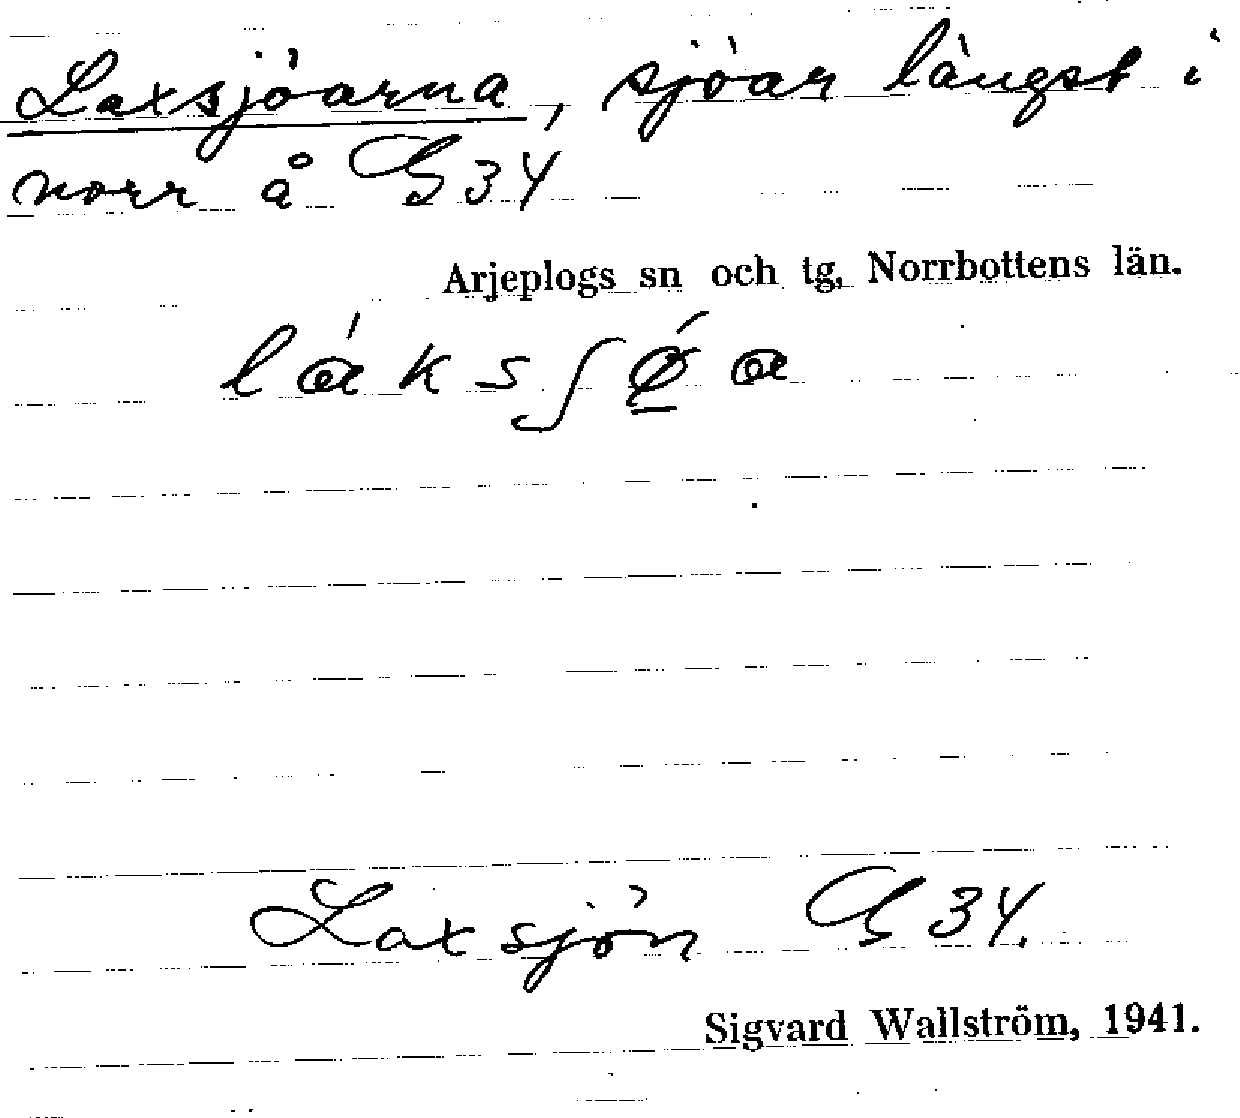 Laxsjöarna, sjöar längst i
norr å G 34
Arjeplogs sn och tg, Norrbottens län.
lɑ́ksʃǿ̱ɑ
Laxsjön G 34.
Sigvard Wallström, 1941.